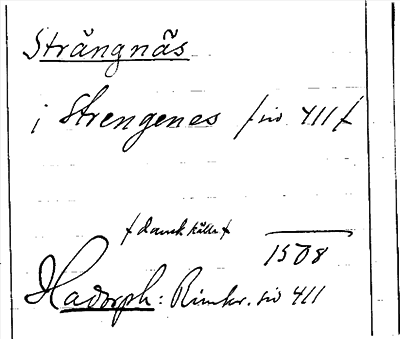 Strängnäs
i Strengenes / sid 411 /
/ dansk källa /
1508
Hadorph: Rimkr. sid 411